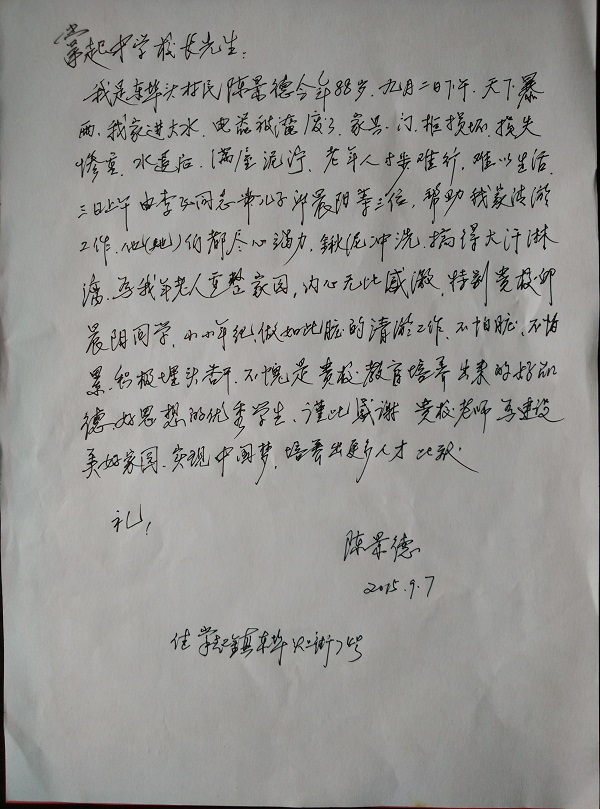 掌起中学校长先生：
我是东埠头村民陈景德今年88岁.九月二日下午.天下暴
雨.我家进大水.电器被灌废了.家具.门.柜损坏.损失
惨重.水退后.满屋泥泞.老年人寸步难行.难以生活.
三日上午由李 同志带儿子邱晨阳等三位，帮助我家清淤
工作.他(她)们都尽心竭力.锹泥冲洗.搞得大汗淋
漓.为我年老人重整家园，内心无比感激.特别贵校邱
晨阳同学.小小年纪做如此脏的清淤工作.不怕脏.不怕
累.积极埋头苦干.不愧是贵校教育培养出来的好品
德.好思想的优秀学生.谨此感谢 贵校老师为建设
美好家园.实现中国梦.培养出更多人才 此致.
礼！
陈景德
2015.9.7
住掌起镇东埠 街 号